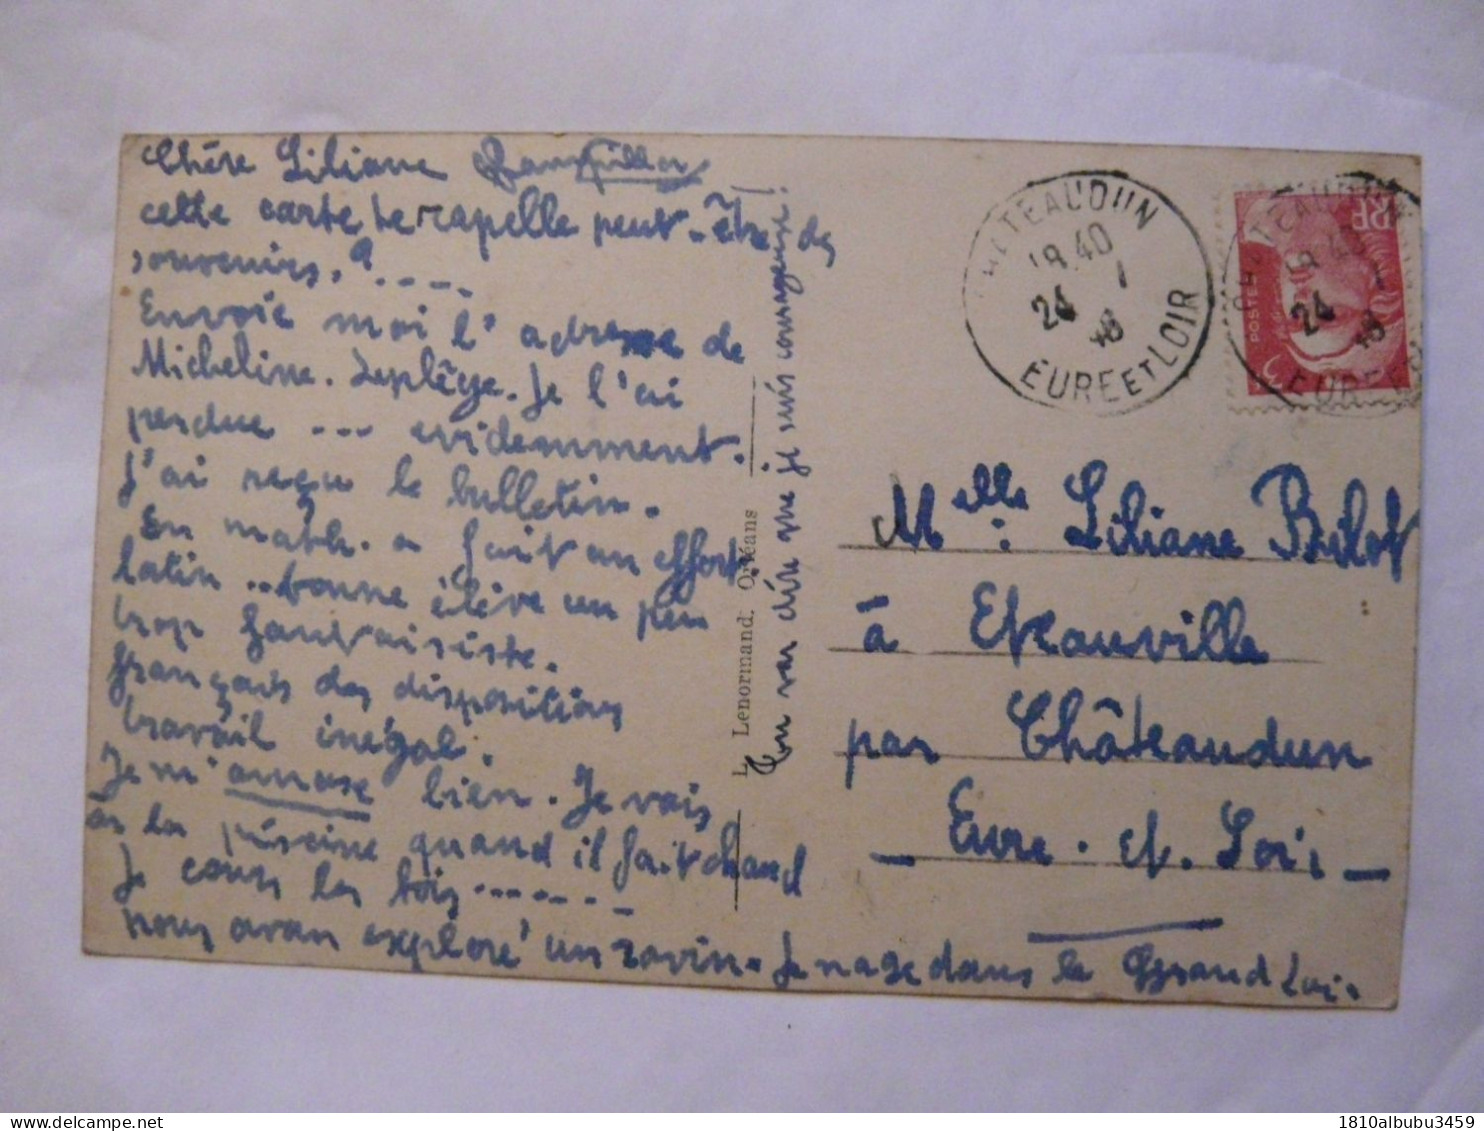 Chère Liliane
cette carte te rapelle peut-être des
souvenirs.?....
Envoie moi l'adresse de
Micheline. Leplège. Je l'ai
perdue ... evidemment.
J'ai reçu le bulletin.
En math. a fait un effort.
latin ..bonne élève un peu
trop fantaisiste.
français des dispositions
travail inégal.
Je m'amuse bien. Je vais
à la piscine quand il fait chaud
Je cours les bois ......
nous avan exploré un ravin. Je nage dans le Grand Loi.
Tu vas dire que je suis courageuse!
L. Lenormand. Orléans
CHATEAUDUN
18.40
24 1
EURE ET LOIR
RF
POSTES
3F
CHATEAUDUN
18 40
24 1
EURE ET
Melle: Liliane Bilot
à Eteauville
par Châteaudun
_ Eure. et. Loir _
1810albubu3459